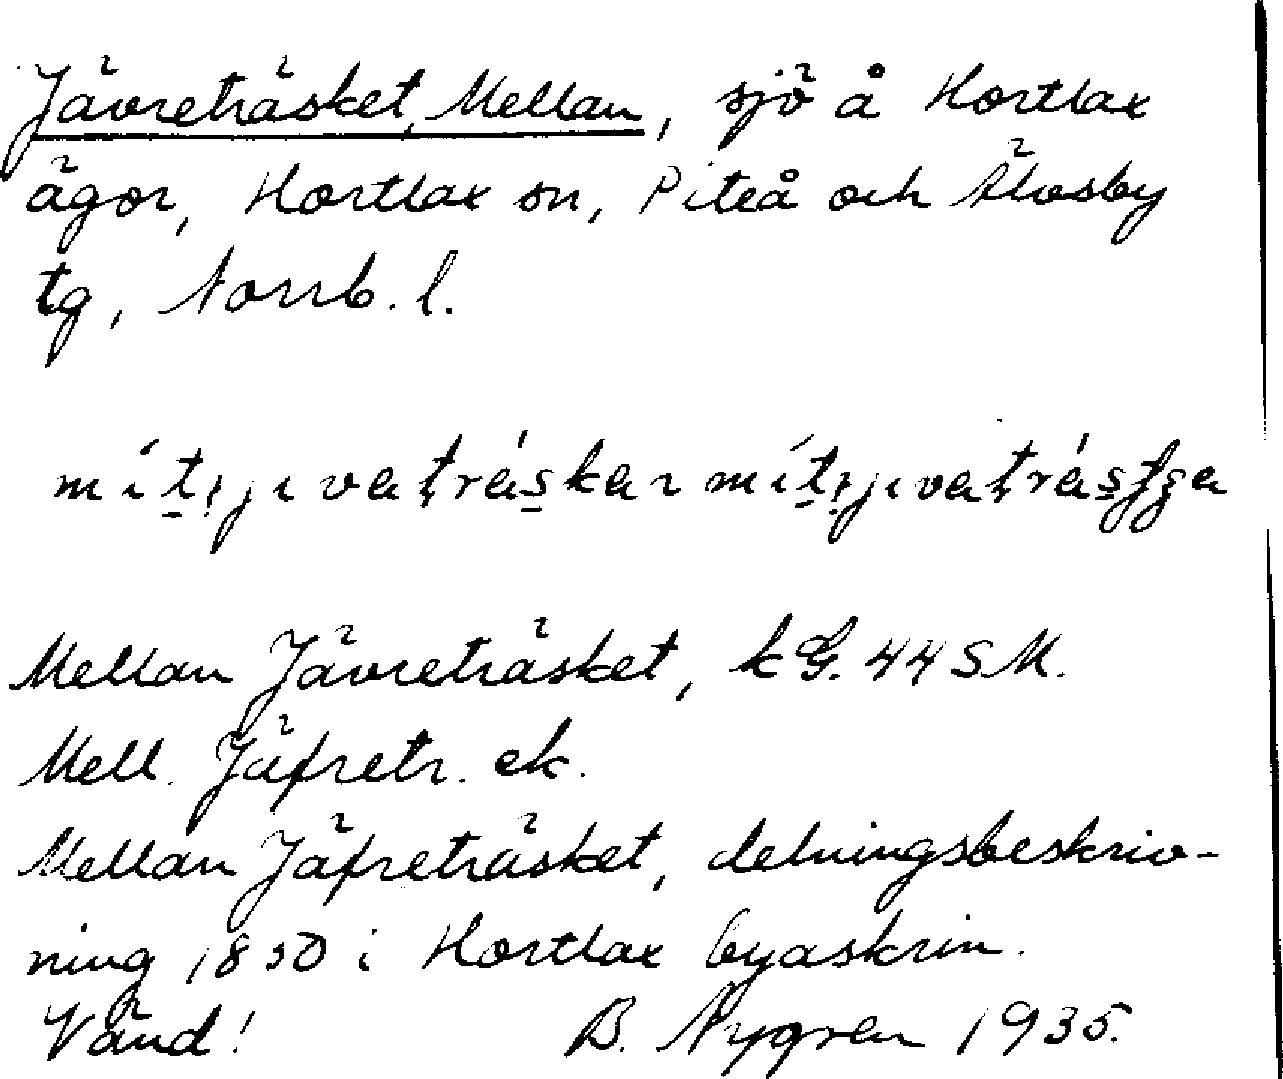 Jävreträsket, Mellan, sjö å Hortlax
ägor, Hortlax sn, Piteå och Älvsby
tg, Norrb. l.
Mellan Jävreträsket, kG. 44 SM.
Mell. Jäfretr. ek.
Mellan Jäfreträsket, delningsbeskriv-
ning 1850 i Hortlax byaskrin.
Vänd! B. Nygren 1935.